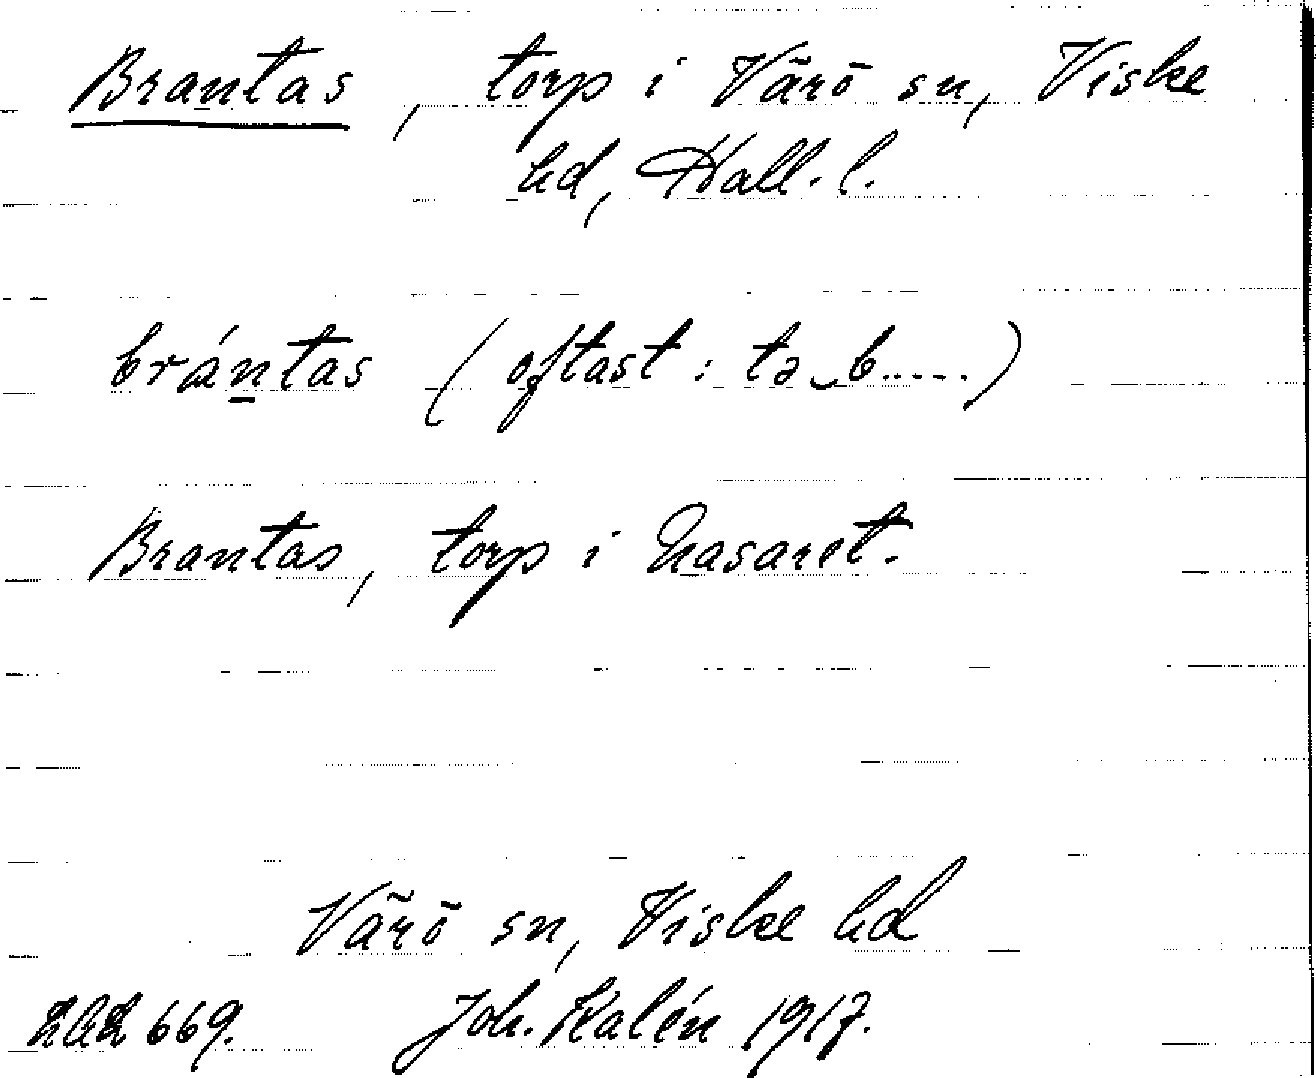 Brantas, torp i Värö sn, Viske
hd, Hall. l.
brántas (oftast: tə‿b.....)
Brantas, torp i Nasaret.
Värö sn, Viske hd
669. Joh. Kalén 1917.